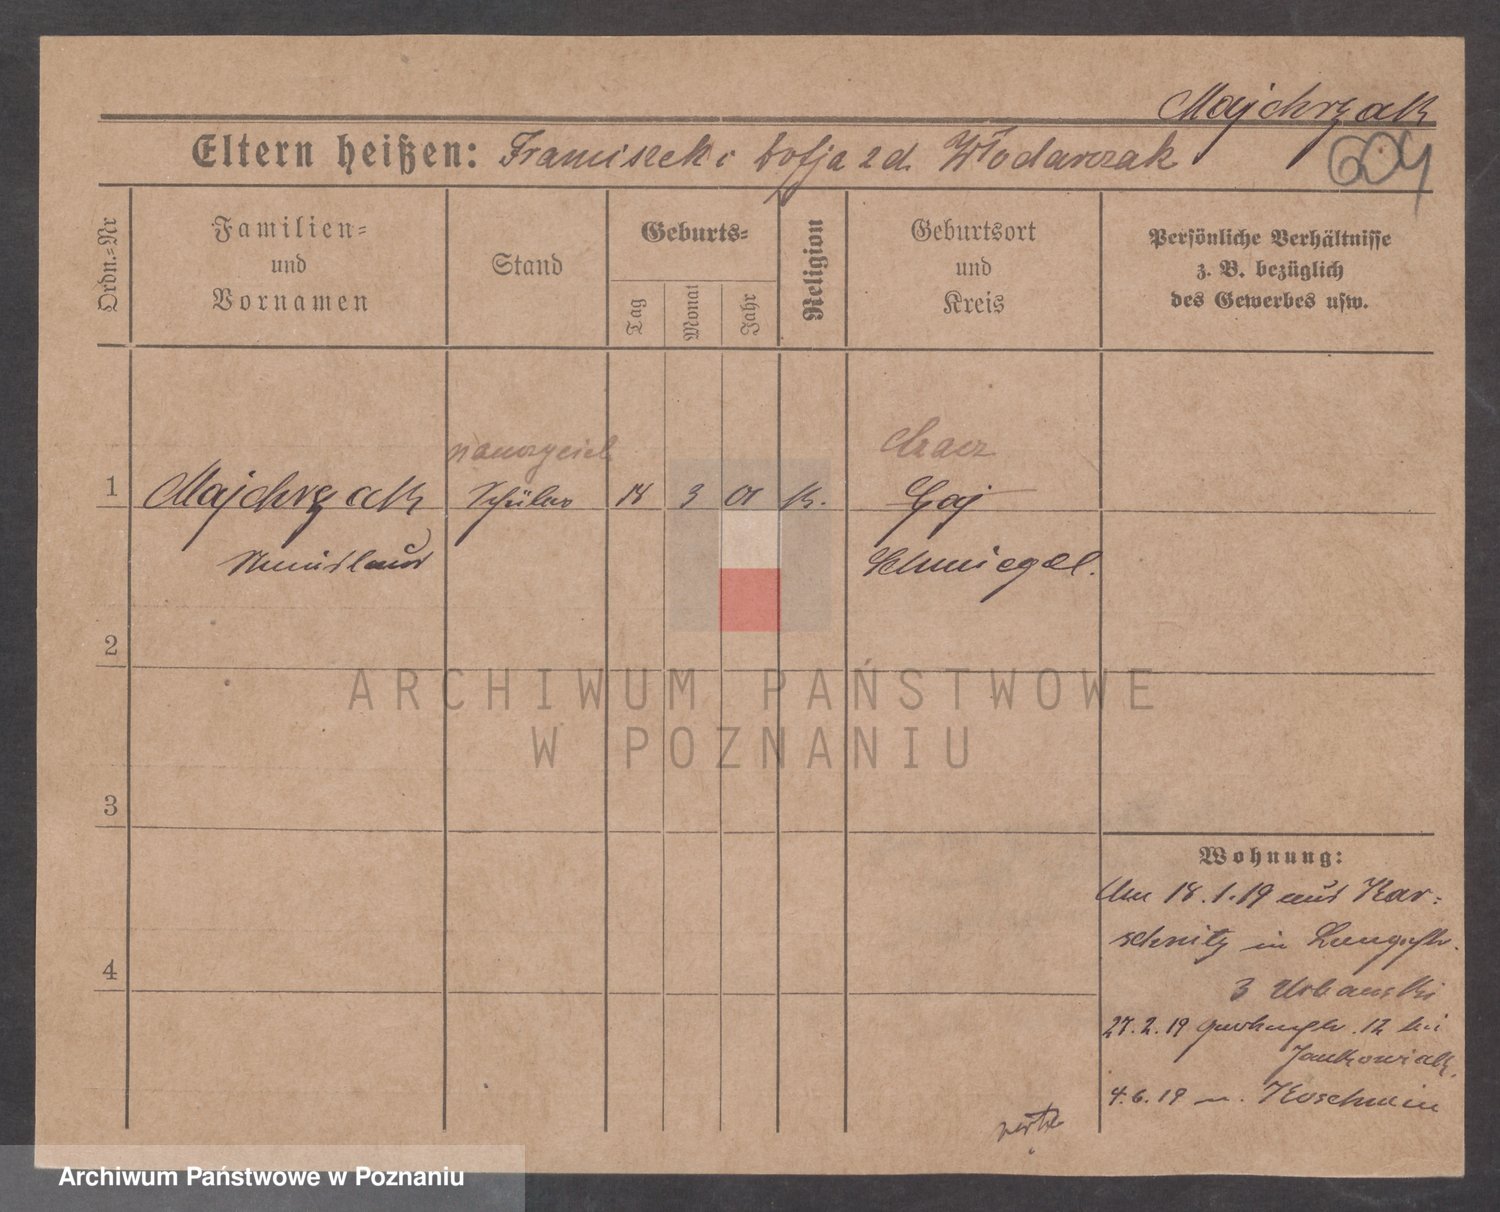 Majchrzak
604
Eltern heißen: Franciszek i Zofja z d. Włodarczak
Ordn.-Nr
Familien-
und
Vornamen
Stand
Geburts-
Tag
Monat
Jahr
Religion
Geburtsort
und
Kreis
Persönliche Verhältnisse
z. B. bezüglich
des Gewerbes usw.
1
Majchrzak
Schüler
18
3
01
k.
Gaj
Schmiegel.
2
ARCHIWUM PAŃSTWOWE
W POZNANIU
3
4
Wohnung:
Am 18.1.19 aus Kar-
schnitz in Langestr.
3 Urbanski
27.2.19 12 bei
Jankowiak.
4.6.19 n. Koschmin
Archiwum Państwowe w Poznaniu